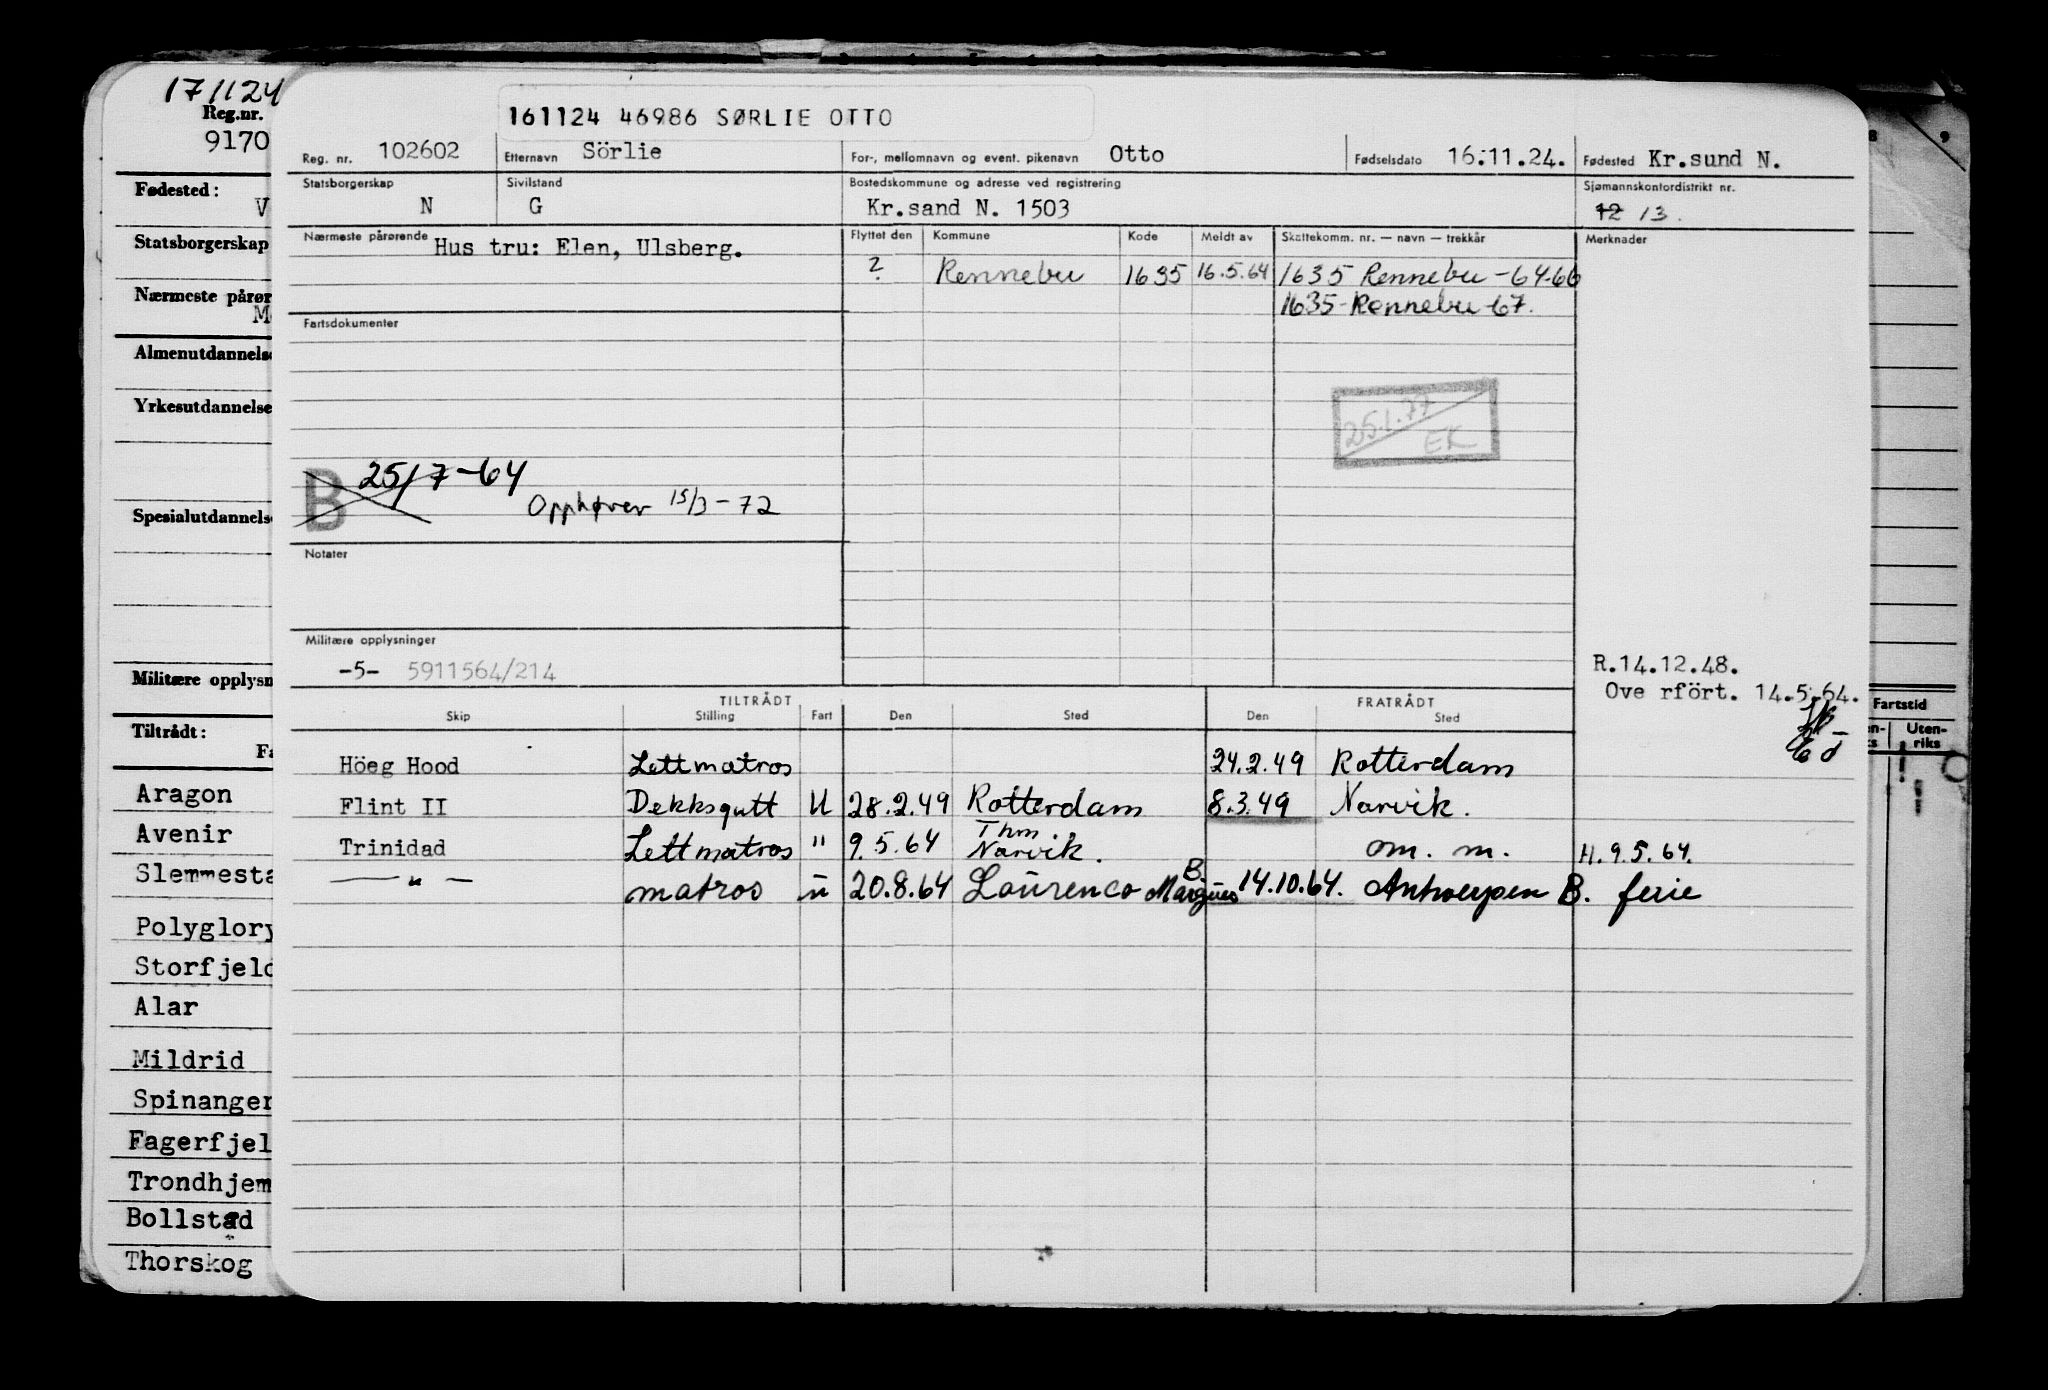 17/1124
Reg.nr.
9170
Fødested:
V
Statsborgerskap
Nærmeste pårør
M
Almenutdannelse
Yrkesutdannelse
Spesialutdannelse
Militære opplysn
Tiltrådt:
Fa
Aragon
Avenir
Slemmesta
Polyglory
Storfjeld
Alar
Mildrid
Spinanger
Fagerfjel
Trondhjem
Bollstad
Thorskog
161124 46986 SØRLIE OTTO
Reg. nr. 102602 Etternavn Sörlie For-, mellomnavn og event. pikenavn Otto Fødselsdato 16.11.24. Fødested Kr.sund N.
Statsborgerskap N Sivilstand G Bostedskommune og adresse ved registrering Kr.sand N. 1503 Sjømannskontordistrikt nr. 12 13.
Nærmeste pårørende Hus tru: Elen, Ulsberg. Flyttet den Kommune Kode Meldt av Skattekomm. nr. — navn — trekkår Merknader
? Rennebu 1635 16.5.64 1635 Rennebu -64-66
1635-Rennebu-67.
Fartsdokumenter
25.1.77
EK
B 25/7-64
Opphører 15/3-72
Notater
Militære opplysninger
-5- 5911564/214
R.14.12.48.
Ove rfört. 14.5.64.
TILTRÅDT FRATRÅDT
Skip Stilling Fart Den Sted Den Sted
Höeg Hood Lettmatros 24.2.49 Rotterdam
Flint II Dekksgutt U 28.2.49 Rotterdam 8.3.49 Narvik.
Trinidad Lettmatros " 9.5.64 Thm. Narvik. om. m. H.9.5.64.
— " — matros u 20.8.64 Lourenco Marques B. 14.10.64. Antwerpen B. ferie
8 9
Fartstid
n-
ks
Uten-
riks